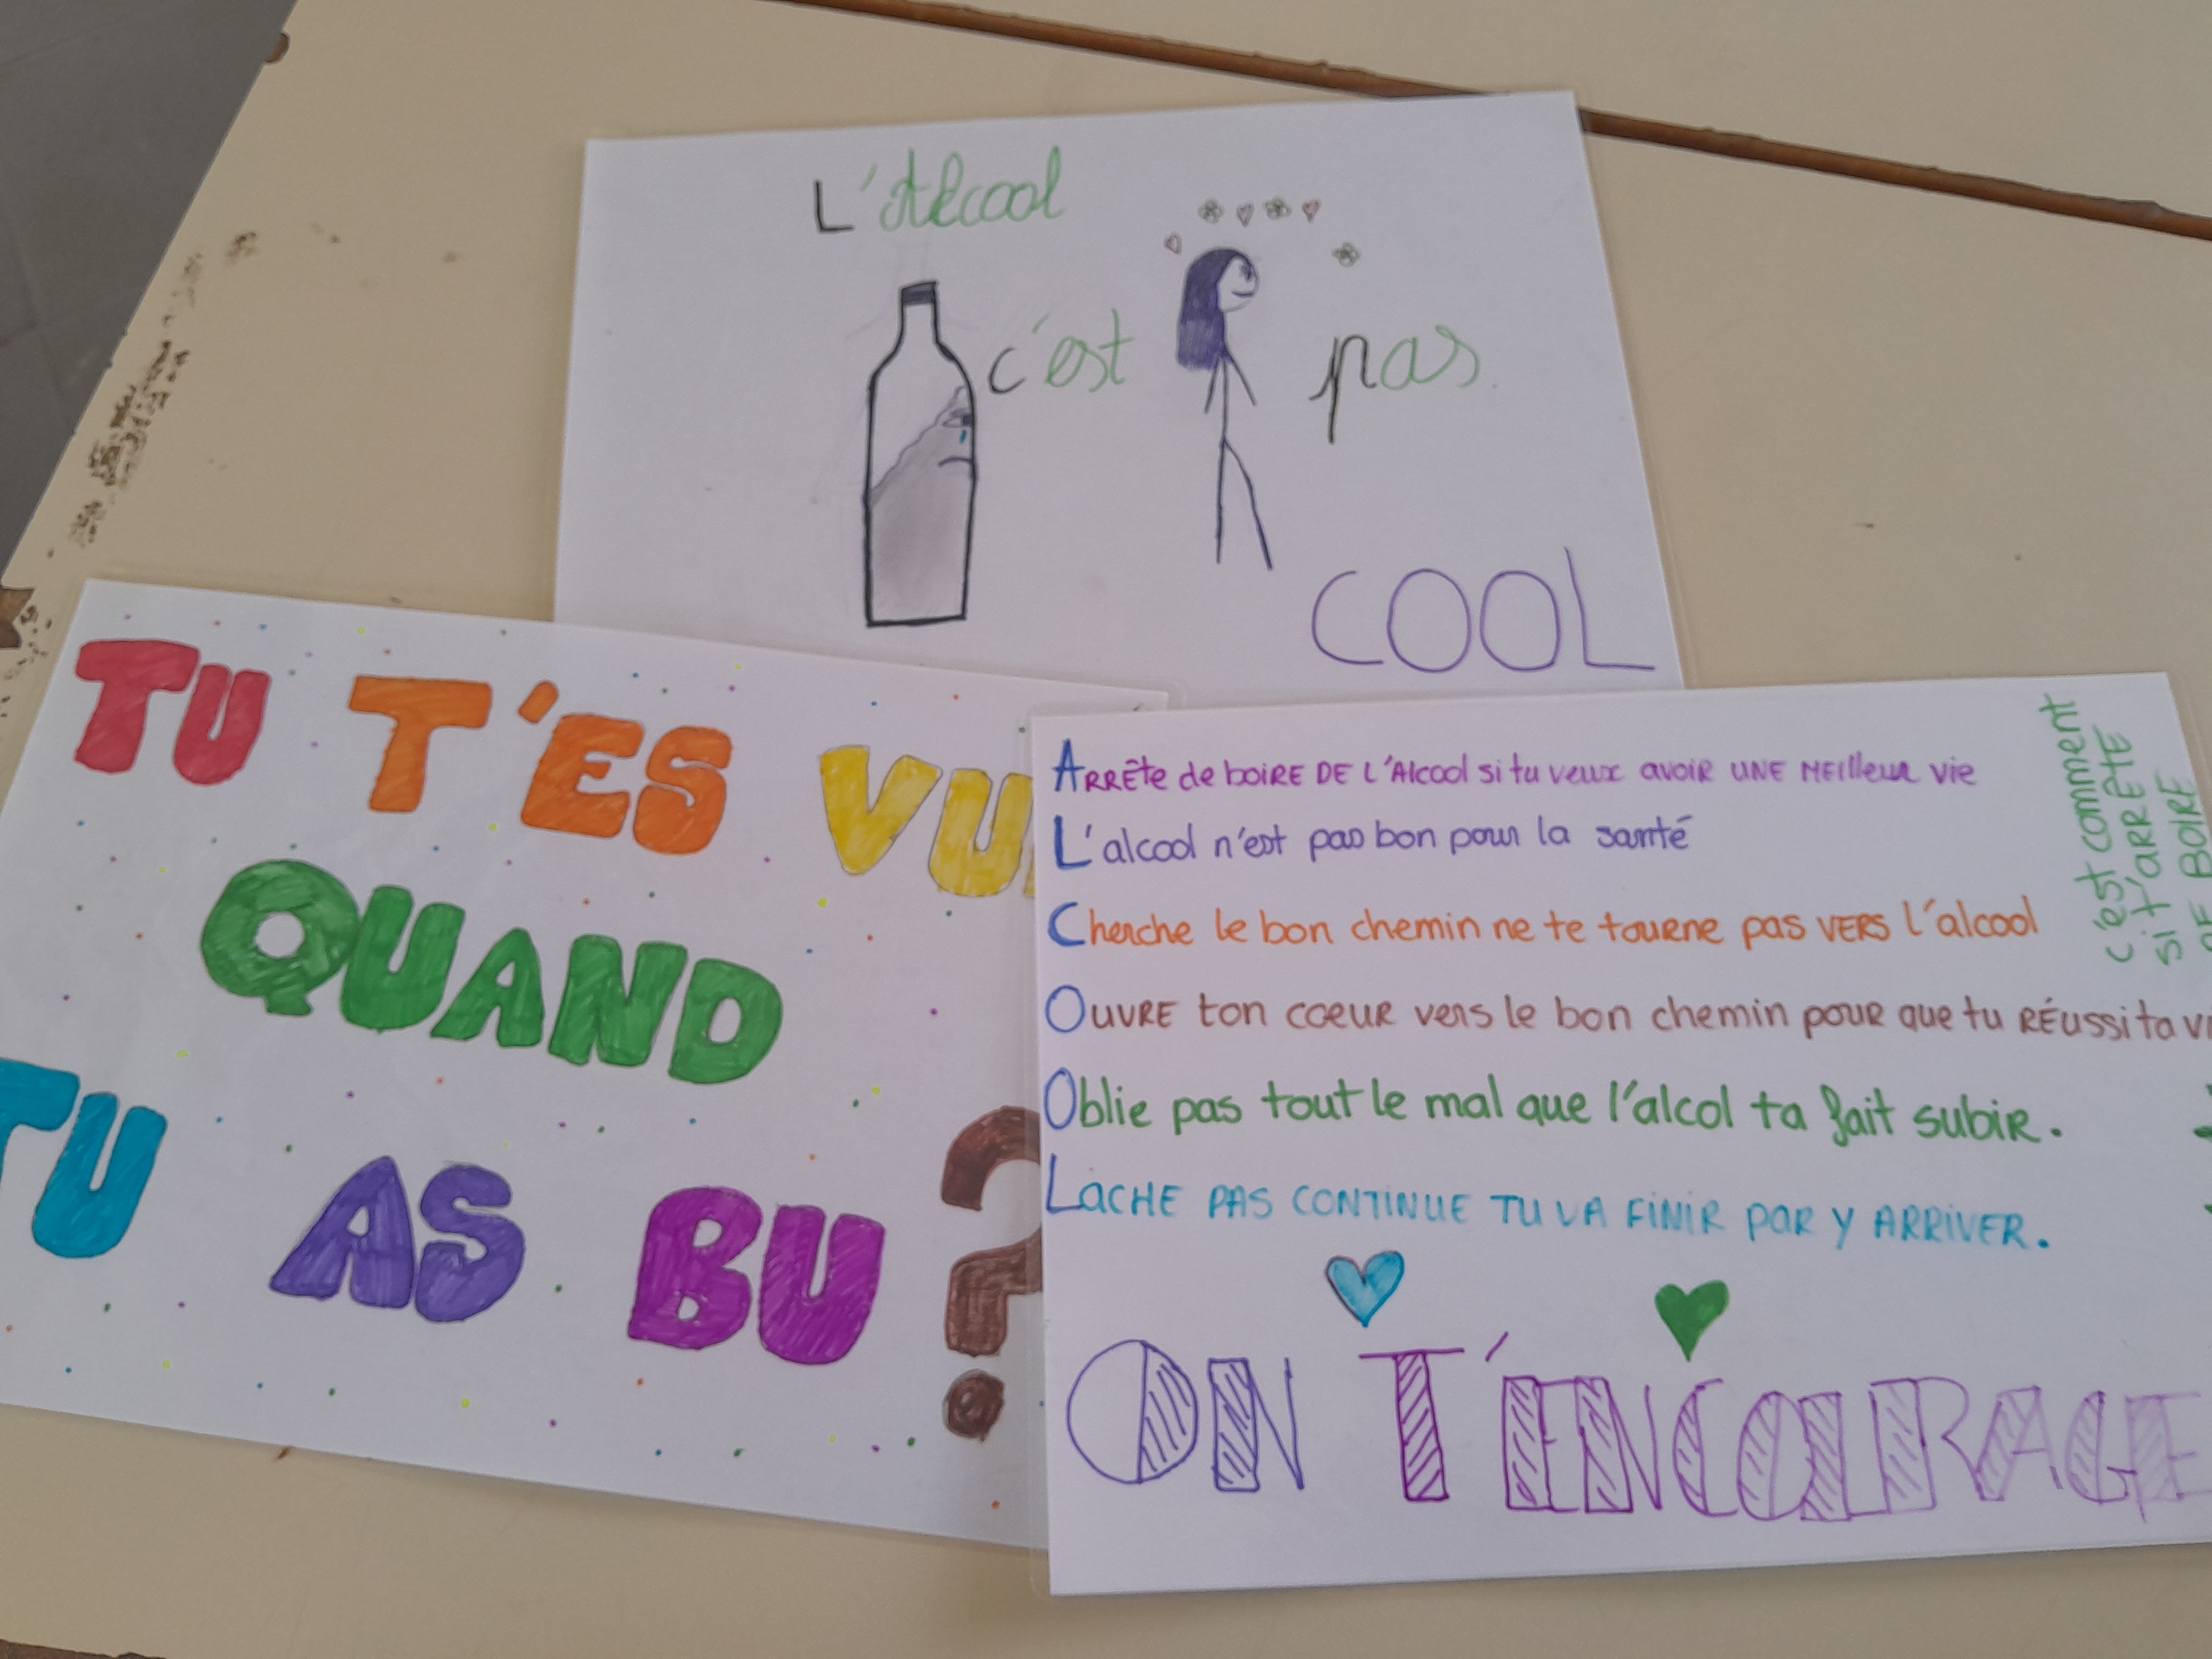 L'Alcool
c'est pas
COOL
TU T'ES VU
QUAND
TU AS BU ?
ARRÊte de boiRE DE L'Alcool si tu veux avoir UNE MEIlleur vie
L'alcool n'est pas bon pour la santé
Cherche le bon chemin ne te touRne pas VERS l'alcool
OUVRE ton cœuR veRs le bon chemin pouR que tu RÉussi ta vi
Oblie pas tout le mal que l'alcol ta fait subiR.
LACHE PAS CONTINUE TU VA FiNiR paR y ARRiVER.
ON T'ENCOURAGE
c'est comment
si t'ARRÊTE
DE BOIRE